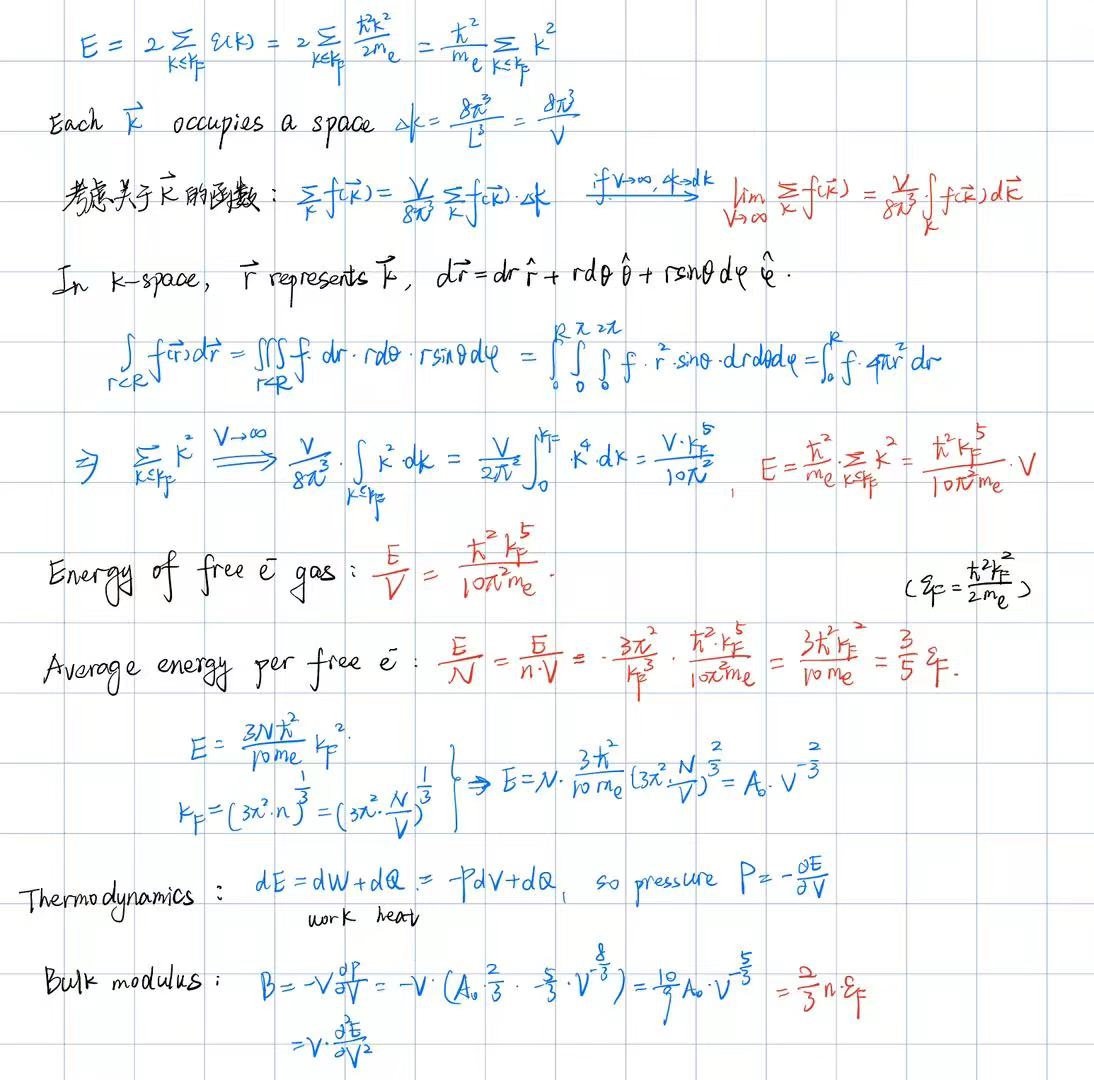 E = 2 Σ_{k≤k_F} ε(k) = 2 Σ_{k≤k_F} ħ²k²/2m_e = ħ²/m_e Σ_{k≤k_F} k²
Each k⃗ occupies a space Δk = 8π³/L³ = 8π³/V
考虑关于 k⃗ 的函数: Σ_k f(k⃗) = V/8π³ Σ_k f(k⃗)·Δk if V→∞, Δk→dk ⟶ lim_{V→∞} Σ_k f(k⃗) = V/8π³ ∫_k f(k⃗) dk⃗
In k-space, r⃗ represents k⃗, dr⃗ = dr r̂ + rdθ θ̂ + rsinθdφ φ̂.
∫_{r<R} f(r⃗)dr⃗ = ∭_{r<R} f· dr· rdθ· rsinθdφ = ∫_0^R ∫_0^π ∫_0^{2π} f· r²·sinθ·drdθdφ = ∫_0^R f·4πr² dr
⇒ Σ_{k≤k_F} k² ⟹ (V→∞) V/8π³ · ∫_{k≤k_F} k²·dk = V/2π² ∫_0^{k_F} k⁴·dk = V·k_F⁵/10π², E = ħ²/m_e · Σ_{k≤k_F} k² = ħ²k_F⁵/10π²m_e · V
Energy of free e⁻ gas: E/V = ħ²k_F⁵/10π²m_e. (ε_F = ħ²k_F²/2m_e)
Average energy per free e⁻: E/N = E/n·V = 3π²/k_F³ · ħ²·k_F⁵/10π²m_e = 3ħ²k_F²/10m_e = 3/5 ε_F.
E = 3Nħ²/10m_e k_F².
k_F = (3π²·n)^{1/3} = (3π²·N/V)^{1/3} } ⇒ E = N· 3ħ²/10m_e (3π²·N/V)^{2/3} = A₀·V^{-2/3}
Thermodynamics: dE = dW + dQ = -PdV + dQ, so pressure P = -∂E/∂V
work heat
Bulk modulus: B = -V ∂P/∂V = -V·(A₀·2/3·-5/3·V^{-8/3}) = 10/9 A₀·V^{-5/3} = 2/3 n·ε_F
= V·∂²E/∂V²